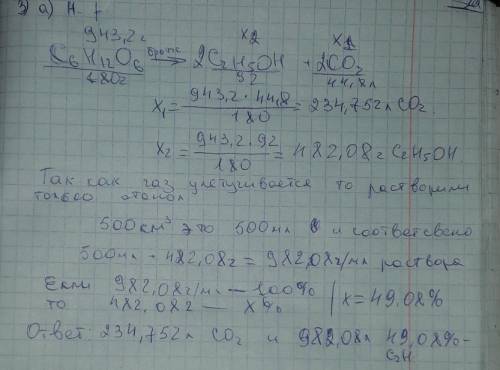 3) а) Н. у.
943,2 г x2 x1
C6H12O6 брож→ 2C2H5OH + 2CO2
180г 92 44,8л
x1 = 943,2 · 44,8 / 180 = 234,752л CO2
x2 = 943,2 · 92 / 180 = 482,08г C2H5OH
Так как газ улетучивается то растворили
только этанол
500см³ это 500мл и соответсвено
500мл + 482,08г = 982,08г/мл раствора
Если 982,08г/мл — 100% | x = 49.08%
то 482,08г — x%
Ответ: 234,752л CO2 и 982,08л 49,08%-
C2H